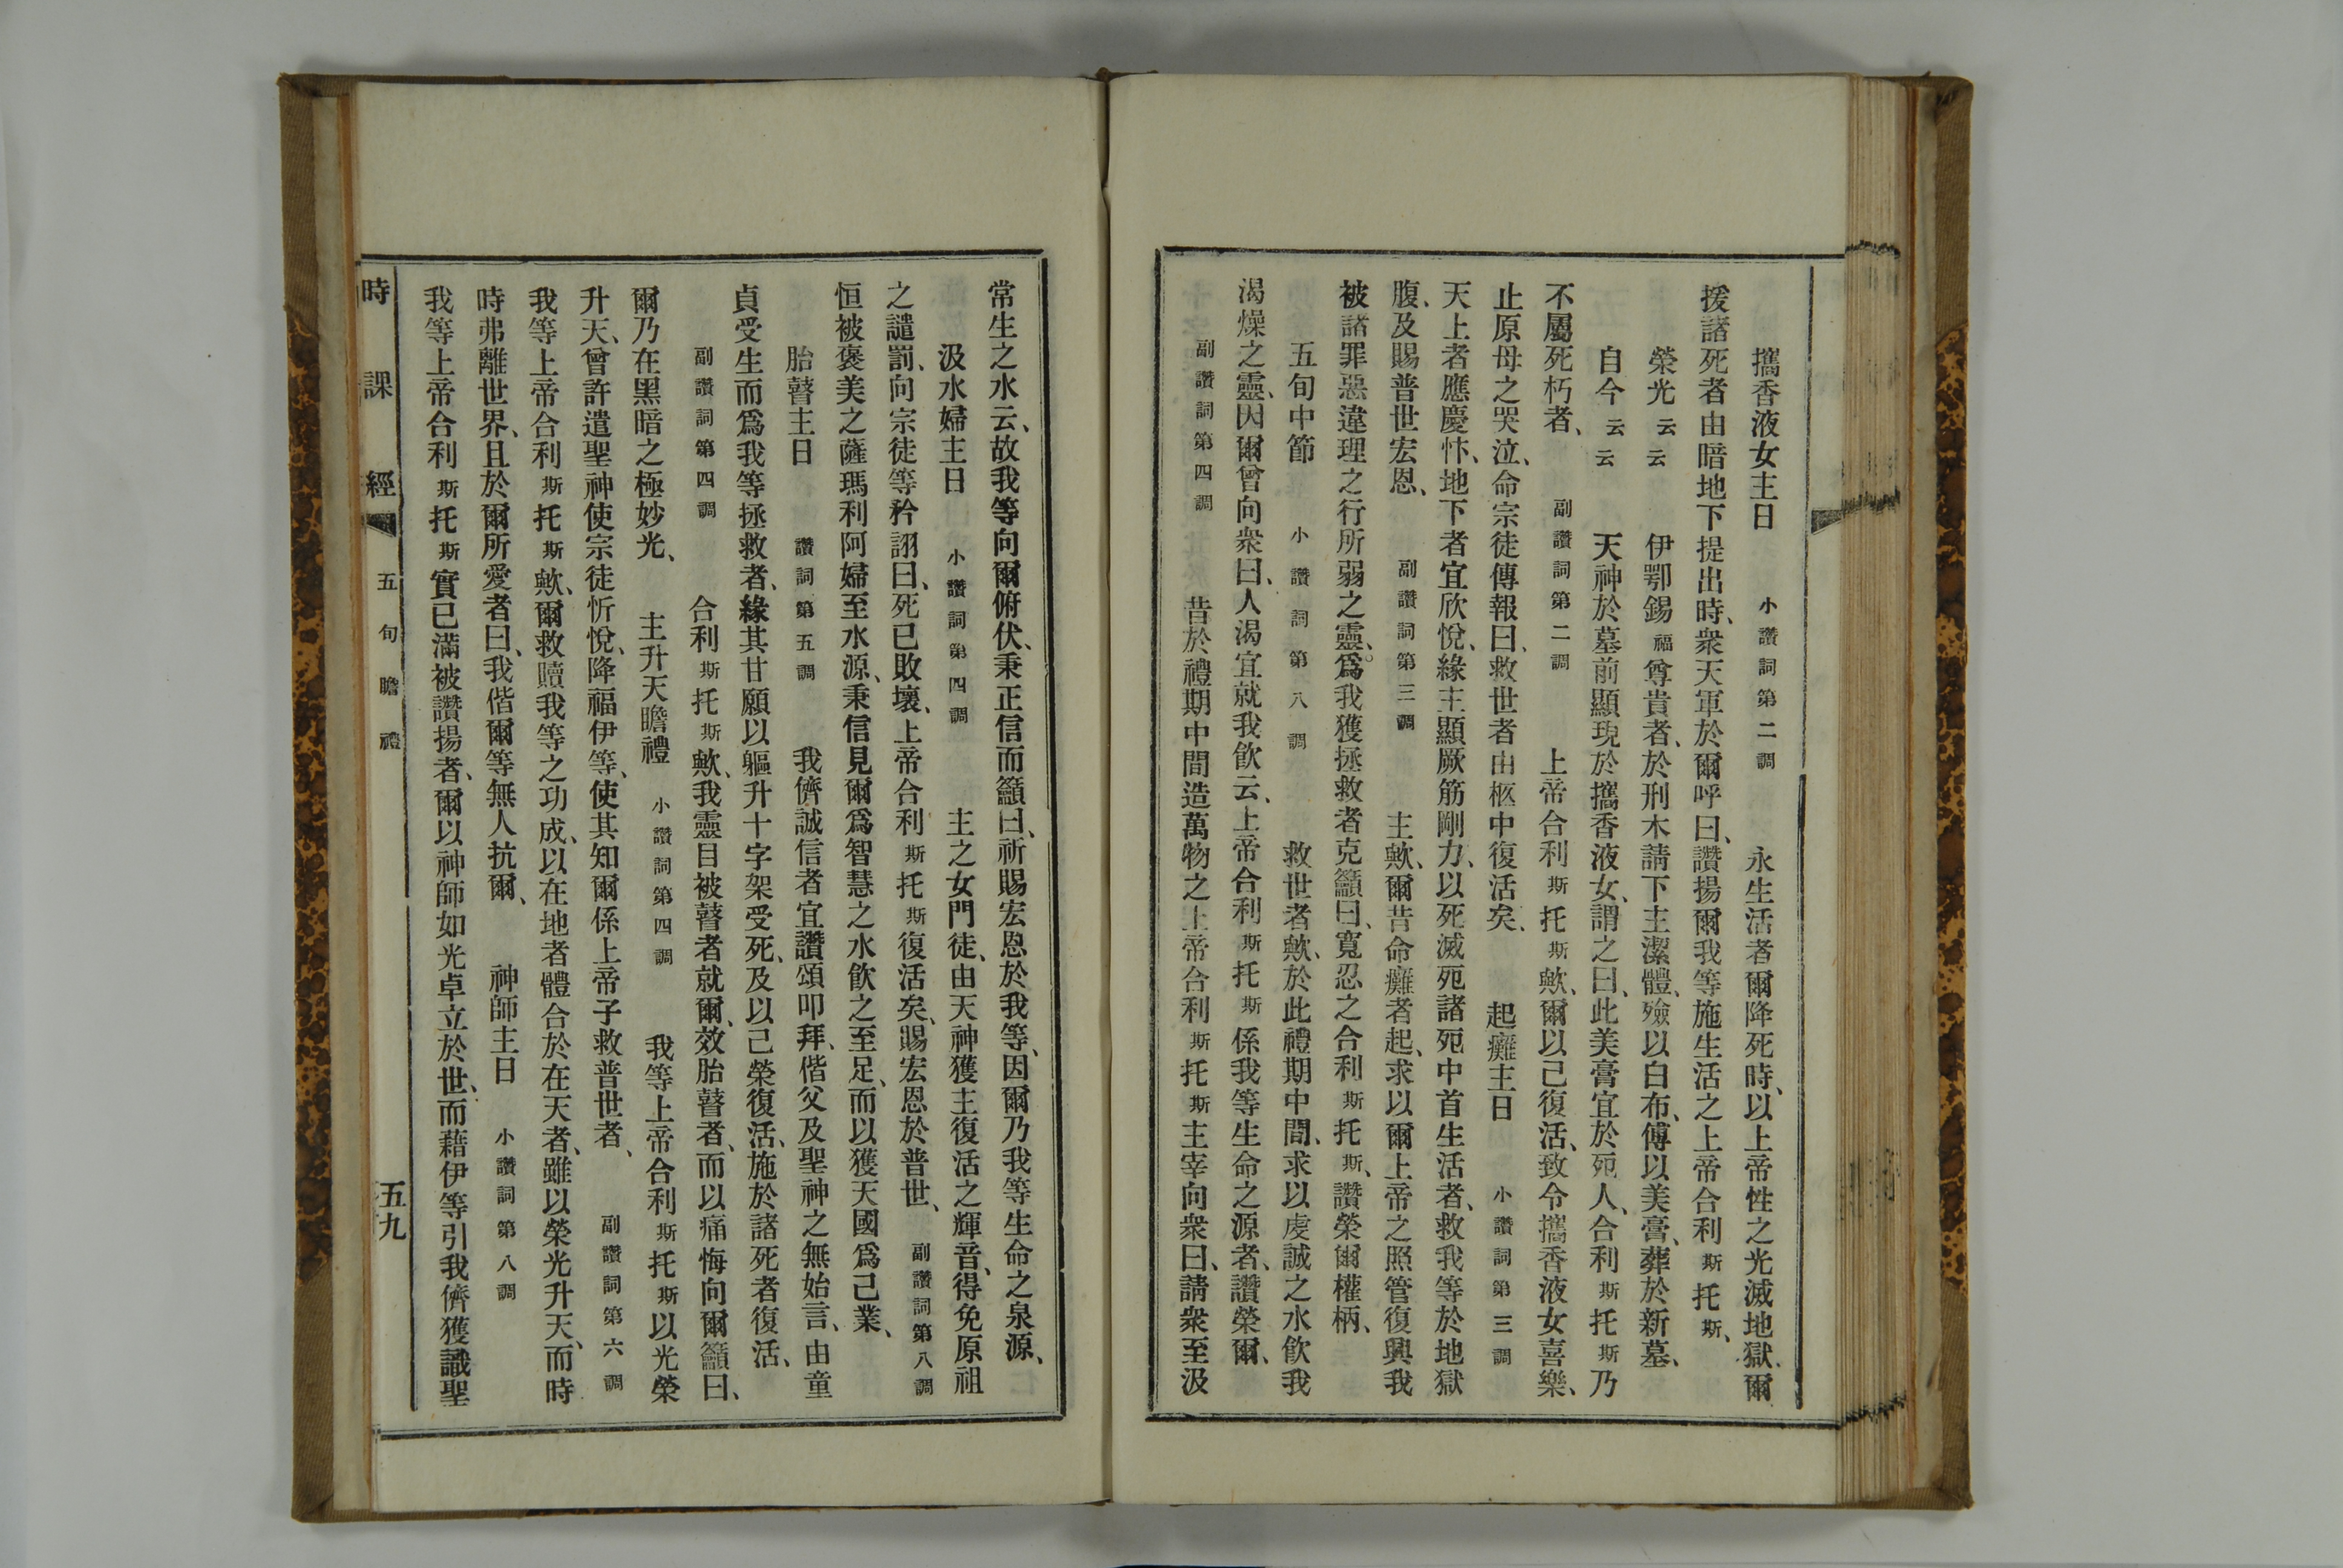 攜香液女主日 小讚詞第二調 永生活者爾降死時、以上帝性之光滅地獄、爾
援諸死者由暗地下提出時、衆天軍於爾呼曰、讚揚爾我等施生活之上帝合利斯托斯、
榮光云云 伊鄂錫福尊貴者、於刑木請下主潔體、殮以白布、傅以美膏、葬於新墓、
自今云云 天神於墓前顯現於攜香液女、謂之曰、此美膏宜於死人、合利斯托斯乃
不屬死朽者、 副讚詞第二調 上帝合利斯托斯歟、爾以己復活、致令攜香液女喜樂、
止原母之哭泣、命宗徒傳報曰、救世者由柩中復活矣、 起癱主日 小讚詞第三調
天上者應慶忭、地下者宜欣悅、緣主顯厥筋剛力、以死滅死諸死中首生活者、救我等於地獄
腹、及賜普世宏恩、 副讚詞第三調 主歟、爾昔命癱者起、求以爾上帝之照管復興我
被諸罪惡違理之行所弱之靈、爲我獲拯救者克籲曰、寬忍之合利斯托斯、讚榮爾權柄、
五旬中節 小讚詞第八調 救世者歟、於此禮期中間、求以虔誠之水飲我
渴燥之靈、因爾曾向衆曰、人渴宜就我飲云、上帝合利斯托斯係我等生命之源者、讚榮爾、
副讚詞第四調 昔於禮期中間造萬物之上帝合利斯托斯主宰向衆曰、請衆至汲
常生之水云、故我等向爾俯伏、秉正信而籲曰、祈賜宏恩於我等、因爾乃我等生命之泉源、
汲水婦主日 小讚詞第四調 主之女門徒、由天神獲主復活之輝音、得免原祖
之譴罰、向宗徒等矜詡曰、死已敗壞、上帝合利斯托斯復活矣、賜宏恩於普世、 副讚詞第八調
恒被褒美之薩瑪利阿婦至水源、秉信見爾爲智慧之水飲之至足、而以獲天國爲己業、
胎瞽主日 讚詞第五調 我儕誠信者宜讚頌叩拜、偕父及聖神之無始言、由童
貞受生而爲我等拯救者、緣其甘願以軀升十字架受死、及以己榮復活、施於諸死者復活、
副讚詞第四調 合利斯托斯歟、我靈目被瞽者就爾、效胎瞽者、而以痛悔向爾籲曰、
爾乃在黑暗之極妙光、 主升天瞻禮 小讚詞第四調 我等上帝合利斯托斯以光榮
升天、曾許遣聖神使宗徒忻悅、降福伊等、使其知爾係上帝子救普世者、 副讚詞第六調
我等上帝合利斯托斯歟、爾救贖我等之功成、以在地者體合於在天者、雖以榮光升天、而時
時弗離世界、且於爾所愛者曰、我偕爾等無人抗爾、 神師主日 小讚詞第八調
我等上帝合利斯托斯實已滿被讚揚者、爾以神師如光卓立於世、而藉伊等引我儕獲識聖
時課經 五旬瞻禮 五九